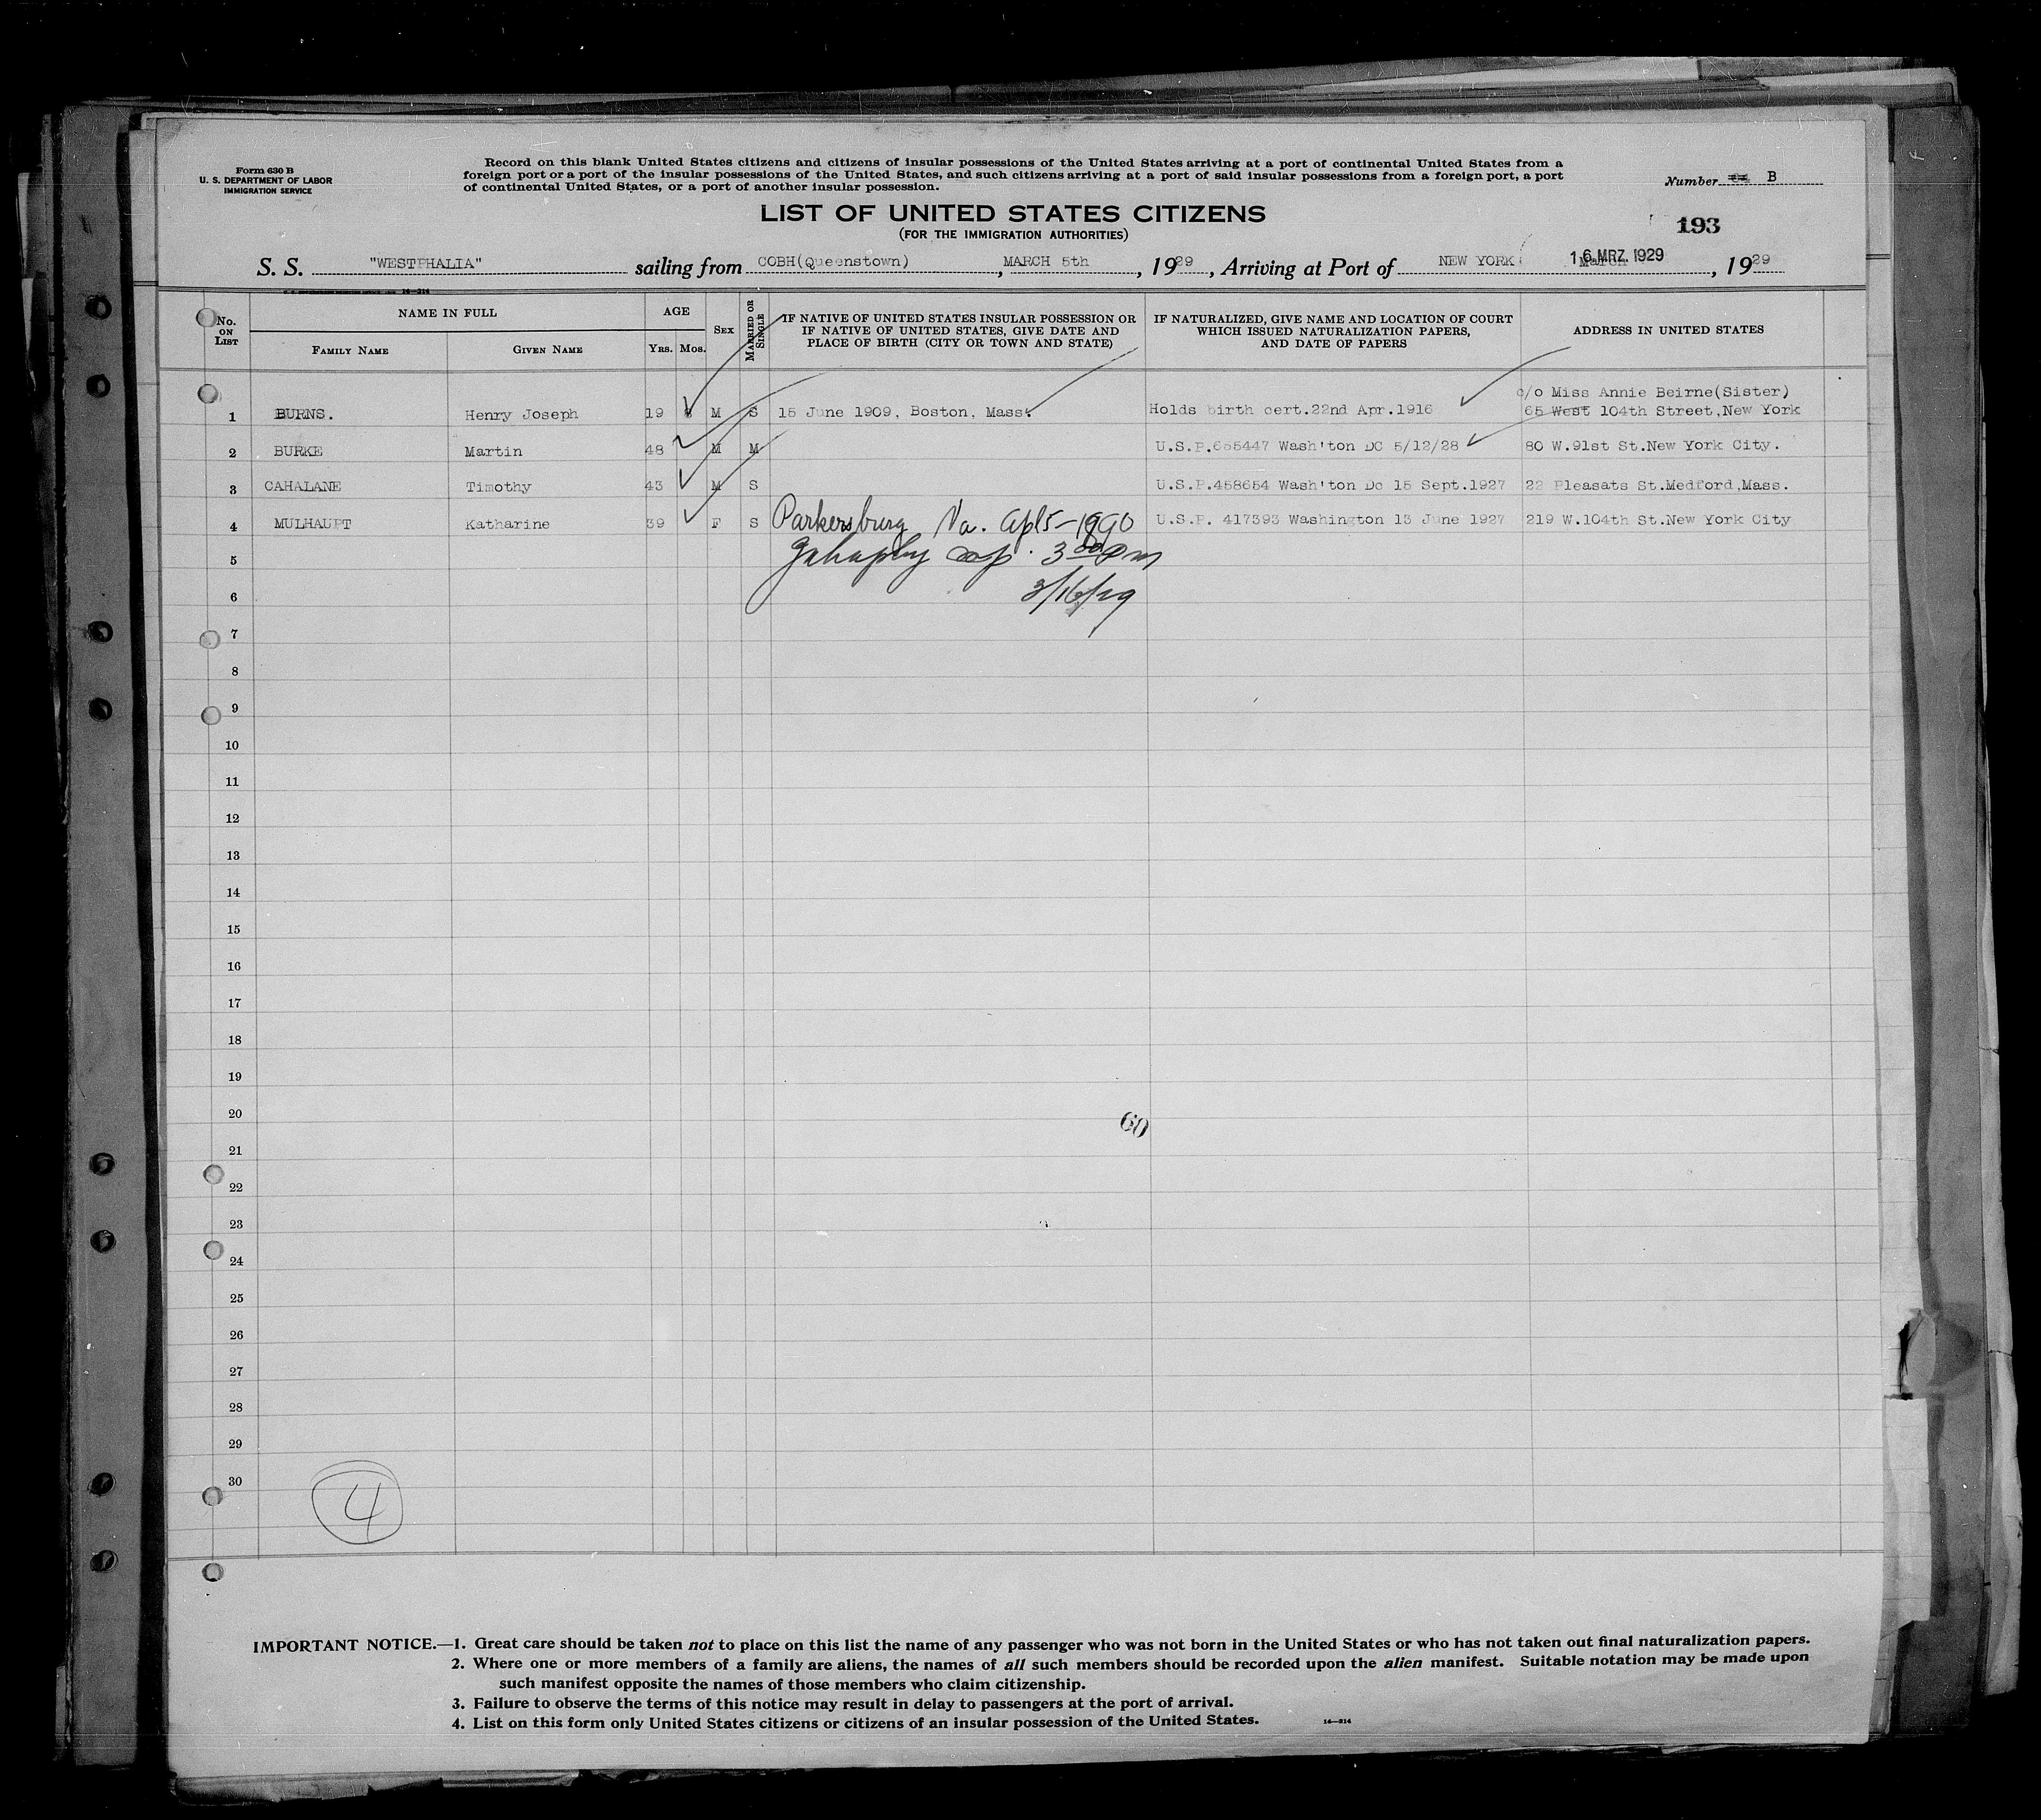 Form 630 B
U. S. DEPARTMENT OF LABOR
IMMIGRATION SERVICE
Record on this blank United States citizens and citizens of insular possessions of the United States arriving at a port of continental United States from a
foreign port or a port of the insular possessions of the United States, and such citizens arriving at a port of said insular possessions from a foreign port, a port
of continental United States, or a port of another insular possession.
Number B
LIST OF UNITED STATES CITIZENS
(FOR THE IMMIGRATION AUTHORITIES)
193
S. S. "WESTPHALIA" sailing from COBH(Queenstown), MARCH 5th, 1929, Arriving at Port of NEW YORK March 16.MRZ.1929, 1929
No. ON LIST
NAME IN FULL
FAMILY NAME
GIVEN NAME
AGE
YRS. MOS.
SEX
MARRIED OR SINGLE
IF NATIVE OF UNITED STATES INSULAR POSSESSION OR
IF NATIVE OF UNITED STATES, GIVE DATE AND
PLACE OF BIRTH (CITY OR TOWN AND STATE)
IF NATURALIZED, GIVE NAME AND LOCATION OF COURT
WHICH ISSUED NATURALIZATION PAPERS,
AND DATE OF PAPERS
ADDRESS IN UNITED STATES
c/o Miss Annie Beirne(Sister)
1 BURNS. Henry Joseph 19 M S 15 June 1909, Boston, Mass. Holds birth cert.22nd Apr.1916 65 West 104th Street,New York
2 BURKE Martin 48 M M U.S.P.655447 Wash'ton DC 5/12/28 80 W.91st St.New York City.
3 CAHALANE Timothy 43 M S U.S.P.458654 Wash'ton Dc 15 Sept.1927 22 Pleasats St.Medford,Mass.
4 MULHAUPT Katharine 39 F S Parkersburg Va. Apl 5-1990 U.S.P. 417393 Washington 13 June 1927 219 W.104th St.New York City
5 3 00 pm
6 3/16/29
7
8
9
10
11
12
13
14
15
16
17
18
19
20
60
21
22
23
24
25
26
27
28
29
30
4
IMPORTANT NOTICE.—1. Great care should be taken not to place on this list the name of any passenger who was not born in the United States or who has not taken out final naturalization papers.
2. Where one or more members of a family are aliens, the names of all such members should be recorded upon the alien manifest. Suitable notation may be made upon
such manifest opposite the names of those members who claim citizenship.
3. Failure to observe the terms of this notice may result in delay to passengers at the port of arrival.
4. List on this form only United States citizens or citizens of an insular possession of the United States.
14—314